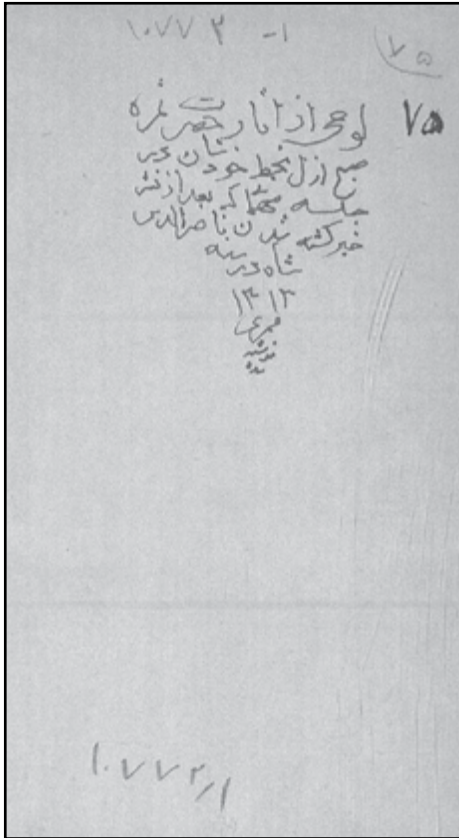 ۱۰۷۷۲ -۱
۷۵
۷۵
لوحی از اثار حضرت ثمره
صبح ازل بخط خودشان در
جلسه که بعد از نشر
خبر کشته شدن ناصرالدین
شاه در سنه
۱۳۱۳
قمری
نوشته
شده
۱۰۷۷۲٫۱